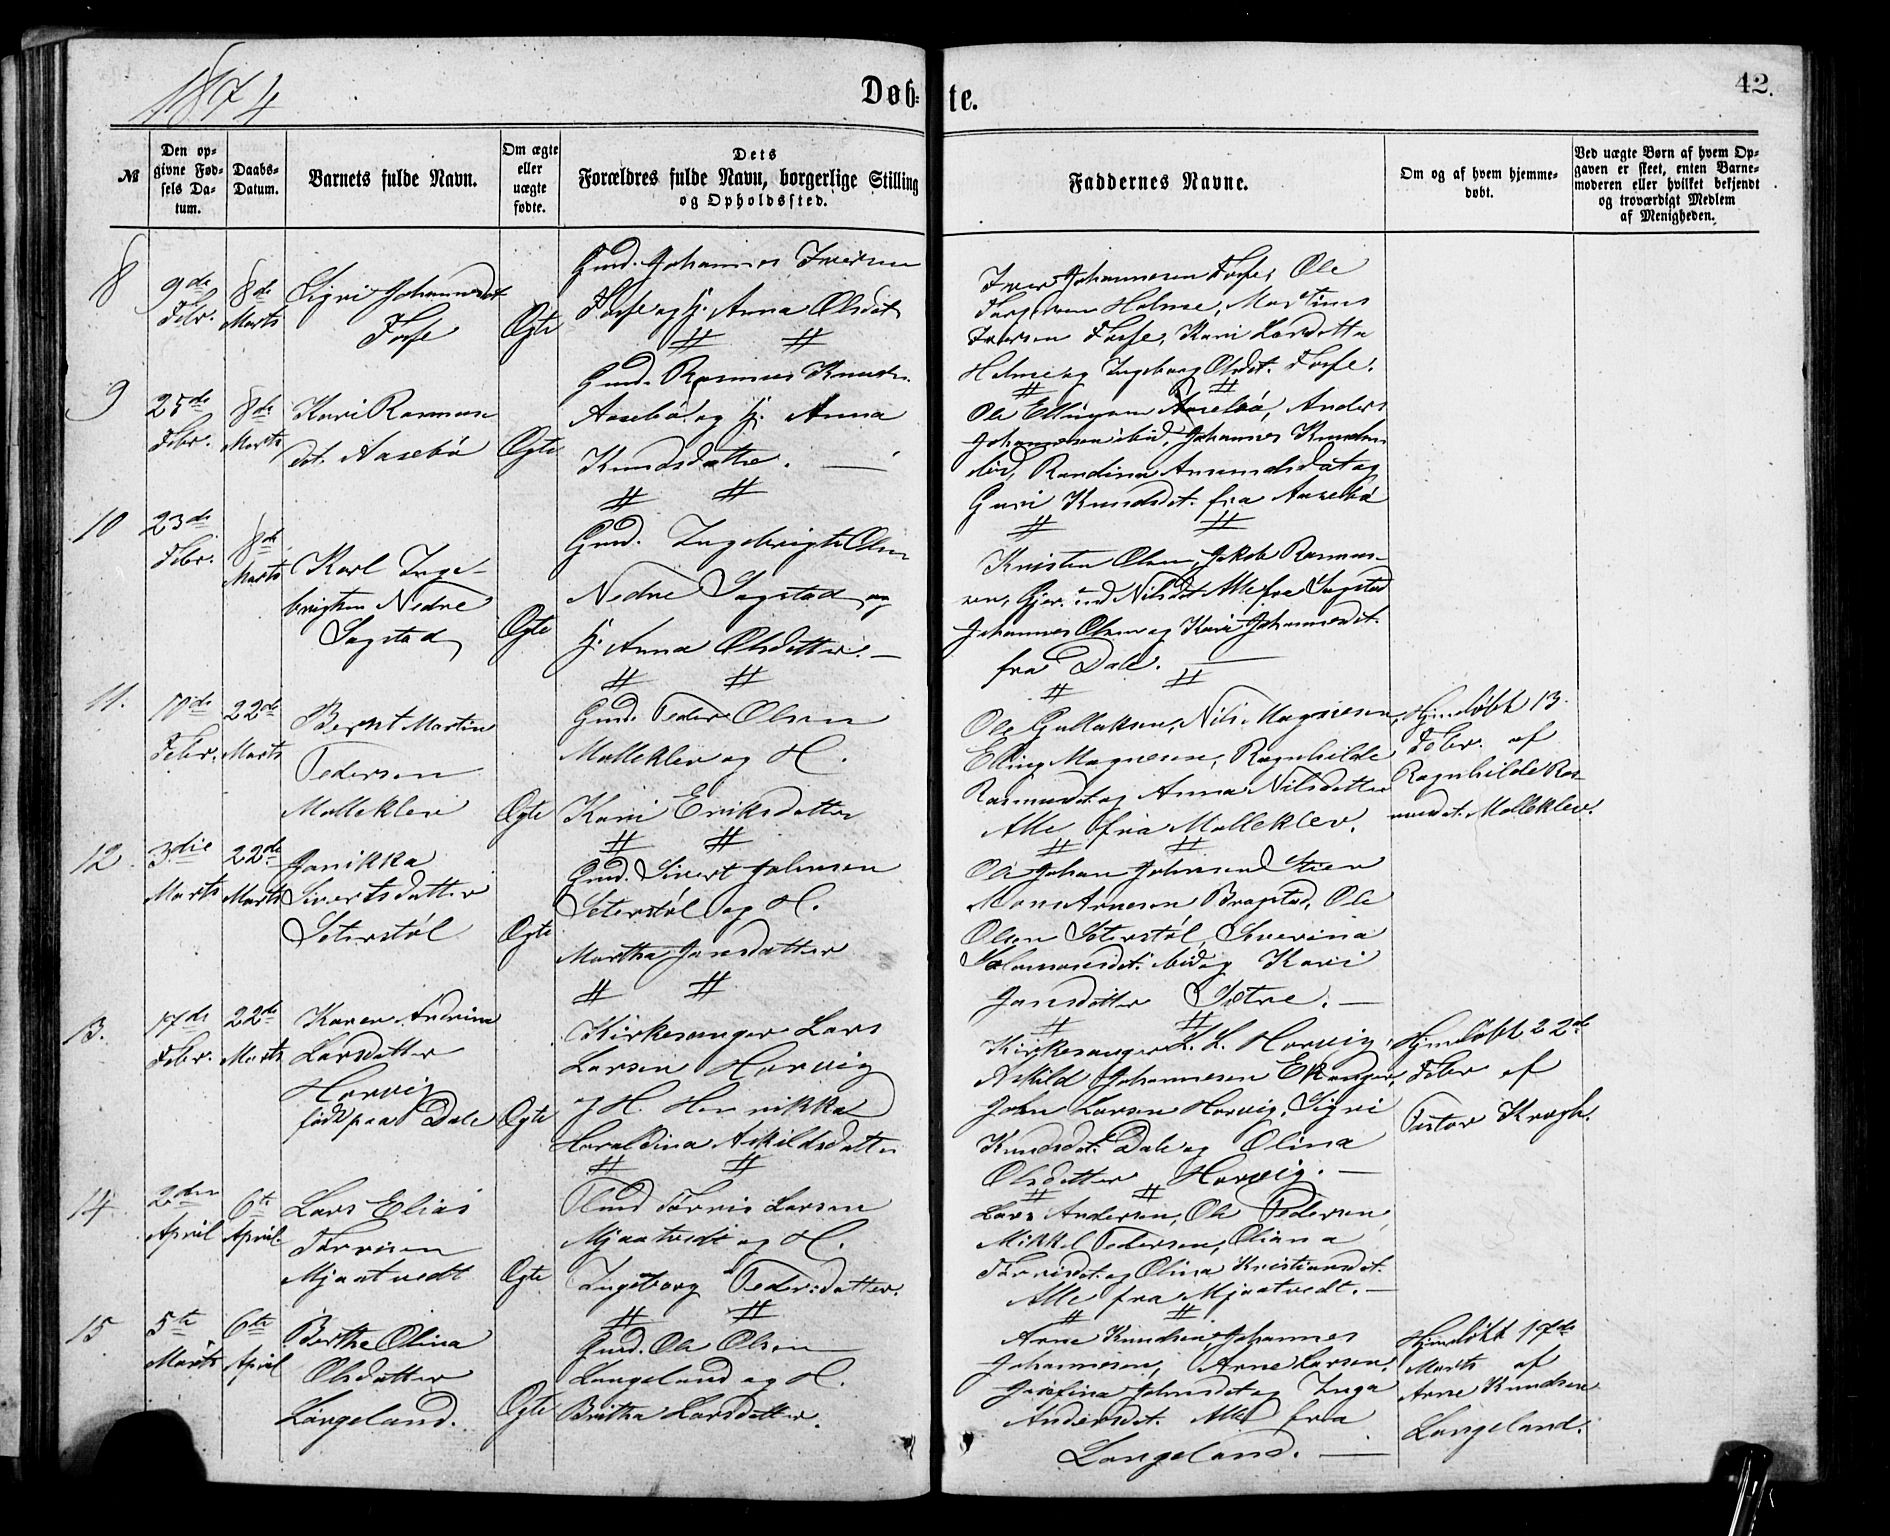 1874
Døb-te.
42.
№
Den op-
givne Fød-
sels Da-
tum.
Daabs-
Datum.
Barnets fulde Navn.
Om ægte
eller
uægte
fødte.
Dets
Forældres fulde Navn, borgerlige Stilling
og Opholdssted.
Faddernes Navne.
Om og af hvem hjemme-
døbt.
Ved uægte Børn af hvem Op-
gaven er skeet, enten Barne-
moderen eller hvilket bekjendt
og troværdigt Medlem
af Menigheden.
8
9de
Febr.
8de
Marts
Sigri Johannesdt
Fosse
Ægte
Gmd. Johannes Iversen
Fosse og H. Anna Olsdat
Iver Johannesen Fosse, Ole
Holme, Martinus
Iversen Fosse, Kari Larsdatter
Helme og Ingeborg Olsdt. Fosse.
9
25de
Febr.
8de
Marts
Kari Rasmus
dt. Aasebö
Ægte
Gmd. Rasmus Knuds.
Aasebö og H. Anna
Knudsdatter.
Ole Ellingsen Aasebö, Anders
Johannesen ibid, Johannes Knudsen
ibid, Randina Amundsdat og
Guri Knudsdt. fra Aasebö
10
23de
Febr.
8de
Marts
Karl Inge-
brigtsen Nedre
Sagstad
Ægte
Gmd. Ingebrigt Olsen
Nedre Sagstad og
H. Anna Olsdatter.
Kristen Olsen, Jakob Rasmus-
sen, Gjertrud Nilsdt Alle fra Sagstad
Johannes Olsen og Kari Johannesdt.
fra Dale.
11.
11de
Febr.
22de
Marts
Bernt Martin
Pedersen
Molleklev
Ægte
Gmd. Peder Olsen
Molleklev og H.
Kari Eriksdatter
Ole Gullaksen, Nils Magnesen
Elling Magnesen, Ragnhilde
Rasmusdt og Anna Nilsdatter
Alle fra Molleklev.
Hjemdöbt 13
Febr. af
Ragnhilde Ras-
musdt. Molleklev.
12
3die
Marts
22de
Marts
Janikka
Sivertsdatter
Seterstöl
Ægte
Gmd. Sivert Johnsen
Seterstöl og H.
Martha Jansdatter
Ole Johan Johnsen
Mons Arnesen Bragstad, Ole
Olsen Seterstöl, Severina
Salamonsdt. ibid og Kari
Jansdatter Sætre.
13.
17de
Febr.
22de
Marts
Karen Andrina
Larsdatter
Horvig
född paa Dale
Ægte
Kirkesanger Lars
Larsen Horvig
og H. Henrikka
Haraldina Askildsdatter
Kirkesanger L. L. Horvig,
Askild Johannesen Ekanger,
John Larsen Horvig, Sigri
Knudsdt. Dale og Olina
Olsdatter Horvig.
Hjemdöbt 22de
Febr af
Pastor Krogh.
14
2den
April
6te
April
Lars Elias
Törrisen
Mjaatvedt
Ægte
Gmd Törris Larsen
Mjaatvedt og H.
Ingeborg Pedersdatter.
Lars Andersen, Ole Pedersen,
Mikkel Pedersen, Oliana
Törrisdt. og Olina Kristiansdt.
Alle fra Mjaatvedt.
15
5te
Marts
6te
April
Berthe Olina
Olsdatter
Langeland.
Ægte
Gmd. Ole Olsen
Langeland og H.
Britha Larsdatter.
Arne Knudsen, Johannes
Johannesen, Arne Larsen,
Josefina Johnsdt og Inga
Andersdt. Alle fra
Langeland.
Hjemdöbt 17de
Marts af
Arne Knudsen
Langeland.